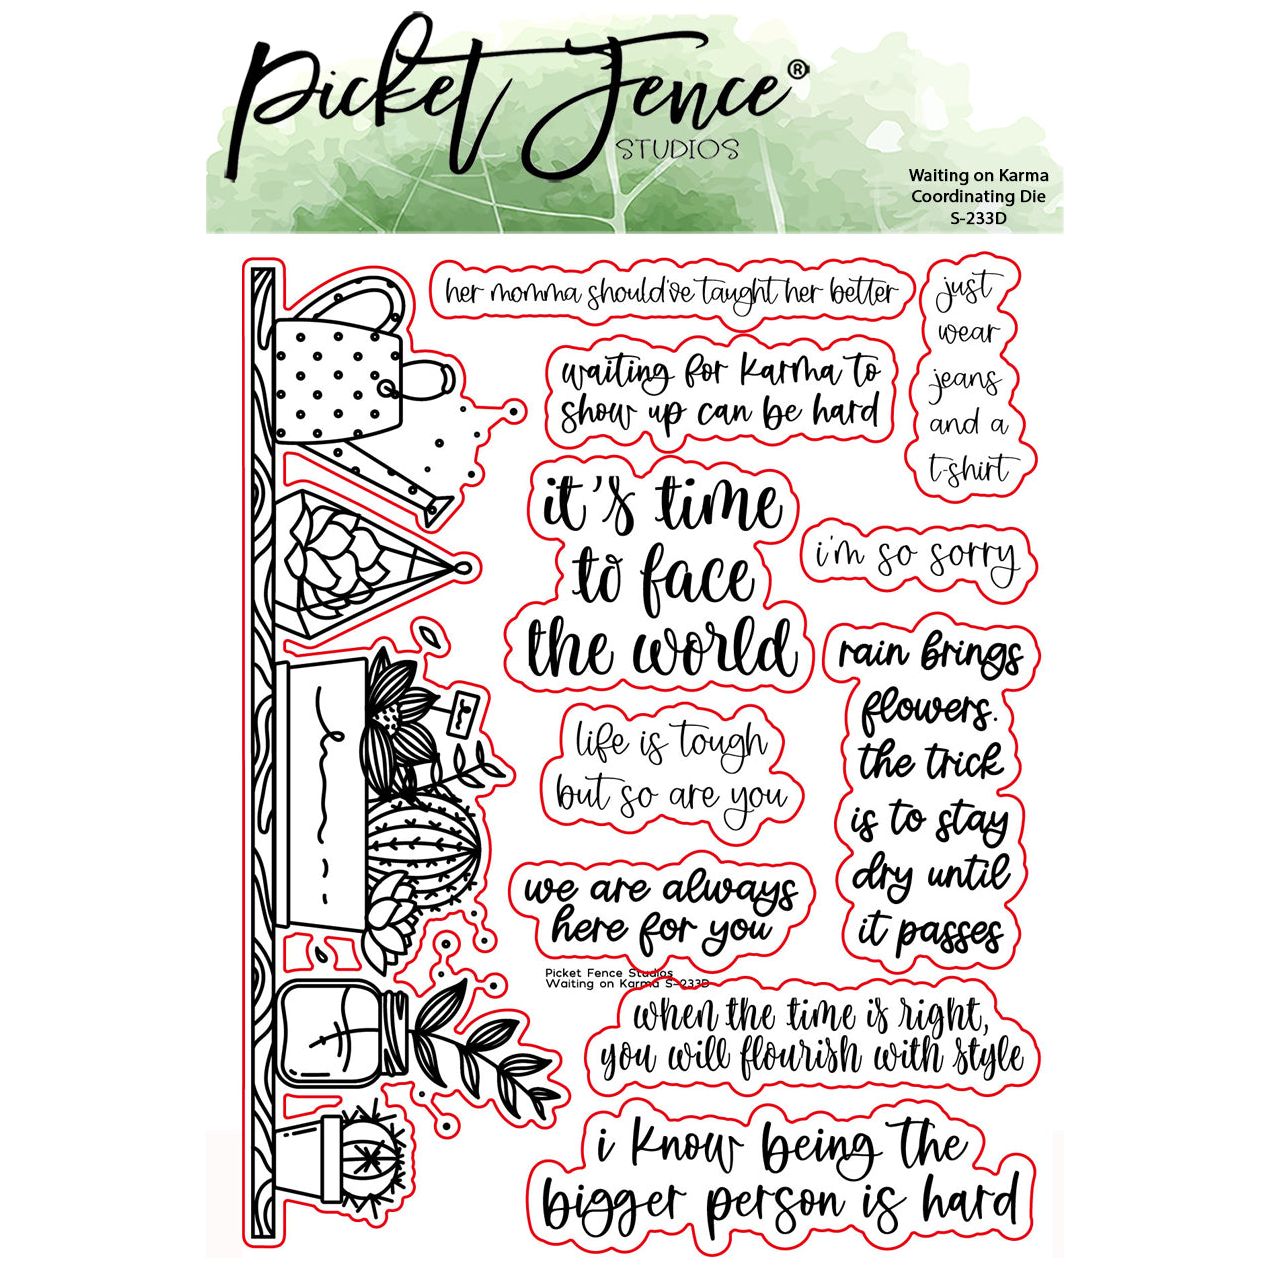 Picket Fence®
STUDIOS
Waiting on Karma
Coordinating Die
S-233D
her momma should've taught her better
just
wear
jeans
and a
t-shirt
waiting for karma to
show up can be hard
it's time
to face
the world
i'm so sorry
rain brings
flowers.
the trick
is to stay
dry until
it passes
life is tough
but so are you
we are always
here for you
Picket Fence Studios
Waiting on Karma S-233D
when the time is right,
you will flourish with style
i know being the
bigger person is hard